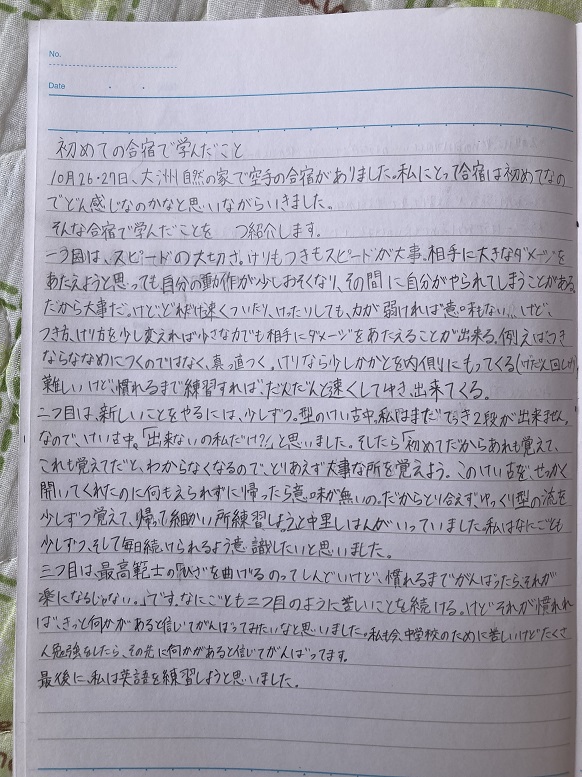 No.
Date
初めての合宿で学んだこと
10月26・27日、大洲自然の家で空手の合宿がありました。私にとって合宿は初めてなの
でどん感じなのかなと思いながらいきました。
そんな合宿で学んだことを つ紹介します。
一つ目は、スピードの大切さ。けりもつきもスピードが大事。相手に大きなダメージを
あたえようと思っても自分の動作が少しおそくなり、その間に自分がやられてしまうことがある。
だから大事だ。けど、どれだけ速くついたり、けったりしても、力が弱ければ意味もない…けど、
つき方、けり方を少し変えれば少さな力でも相手にダメージをあたえることが出来る。例えばつき
ならななめにつくのではなく、真っ直つく。けりなら少しかかとを内側にもってくる(けだん回しけり)
難しいけど、慣れるまで練習すれば、だんだんと速くしてゆき、出来てくる。
二つ目は、新しいことをやるには、少しずつ。型のけい古中。私はまだてっき2段が出来ません。
なので、けいコ中。「出来ないの私だけ?」と思いました。そしたら「初めてだからあれも覚えて、
これも覚えてだと、わからなくなるので、とりあえず大事な所を覚えよう。このけい古を、せっかく
開いてくれたのに何もえられずに帰ったら意味が無いの。だからとり合えず、ゆっくり型の流を
少しずつ覚えて、帰って細かい所練習しようと中里しはんがいっていました。私はなにごとも
少しずつ、そして毎日続けられるよう意識したいと思いました。
三つ目は、最高範士の「ひざを曲げるのってしんどいけど、慣れるまでがんばったら、それが
楽になるじゃない。」です。なにごとも二つ目のように苦いことを続ける。けどそれが慣れれ
ば、きっと何かがあると信じてがんばってみたいなと思いました。私も今、中学校のために苦しいけどたくさ
ん勉強をしたら、その先に何かがあると信じてがんばってます。
最後に、私は英語を練習しようと思いました。